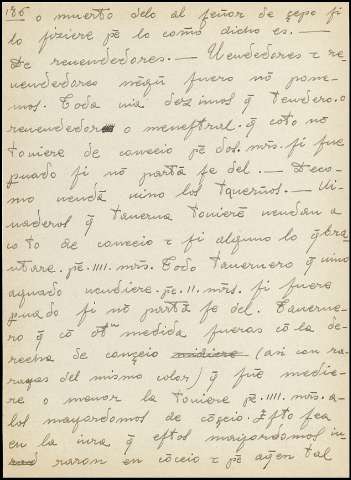 186 o muerto delo al señor de çepo si
lo fiziere pē lo como dicho es. —
De revendedores. — Vendedores τ re-
vendedores nēgū fuero nō pone-
mos. Toda via dezimos q̄ tendero. o
revendedor o menestral. q̄ coto nō
toviere de conceio pē dos. mr̄s. si fue
puado si nō partā se del. — De co-
mo vendā vino los tauernos. — Vi-
naderos q̄ tauerna tovierē vendan a
coto de conceio τ si alguno lo q̄bra-
ntare. pē. IIII. mr̄s. Todo tauernero q̄ vino
aguado vendiere. pē. II. mr̄s. si fuere
puado si nō partā se del. Tauerne-
ro q̄ cō otra medida fueras cō la de-
recha de conçeio vendiere (asi con ra-
yas del mismo color) q̄ fuē medie-
re o menor la toviere pē. IIII. mr̄s. a-
los mayordomos de cōçeio. Esto sea
en la iura q̄ estos mayordomos iu-
raron en cōceio τ pē aqēn tal